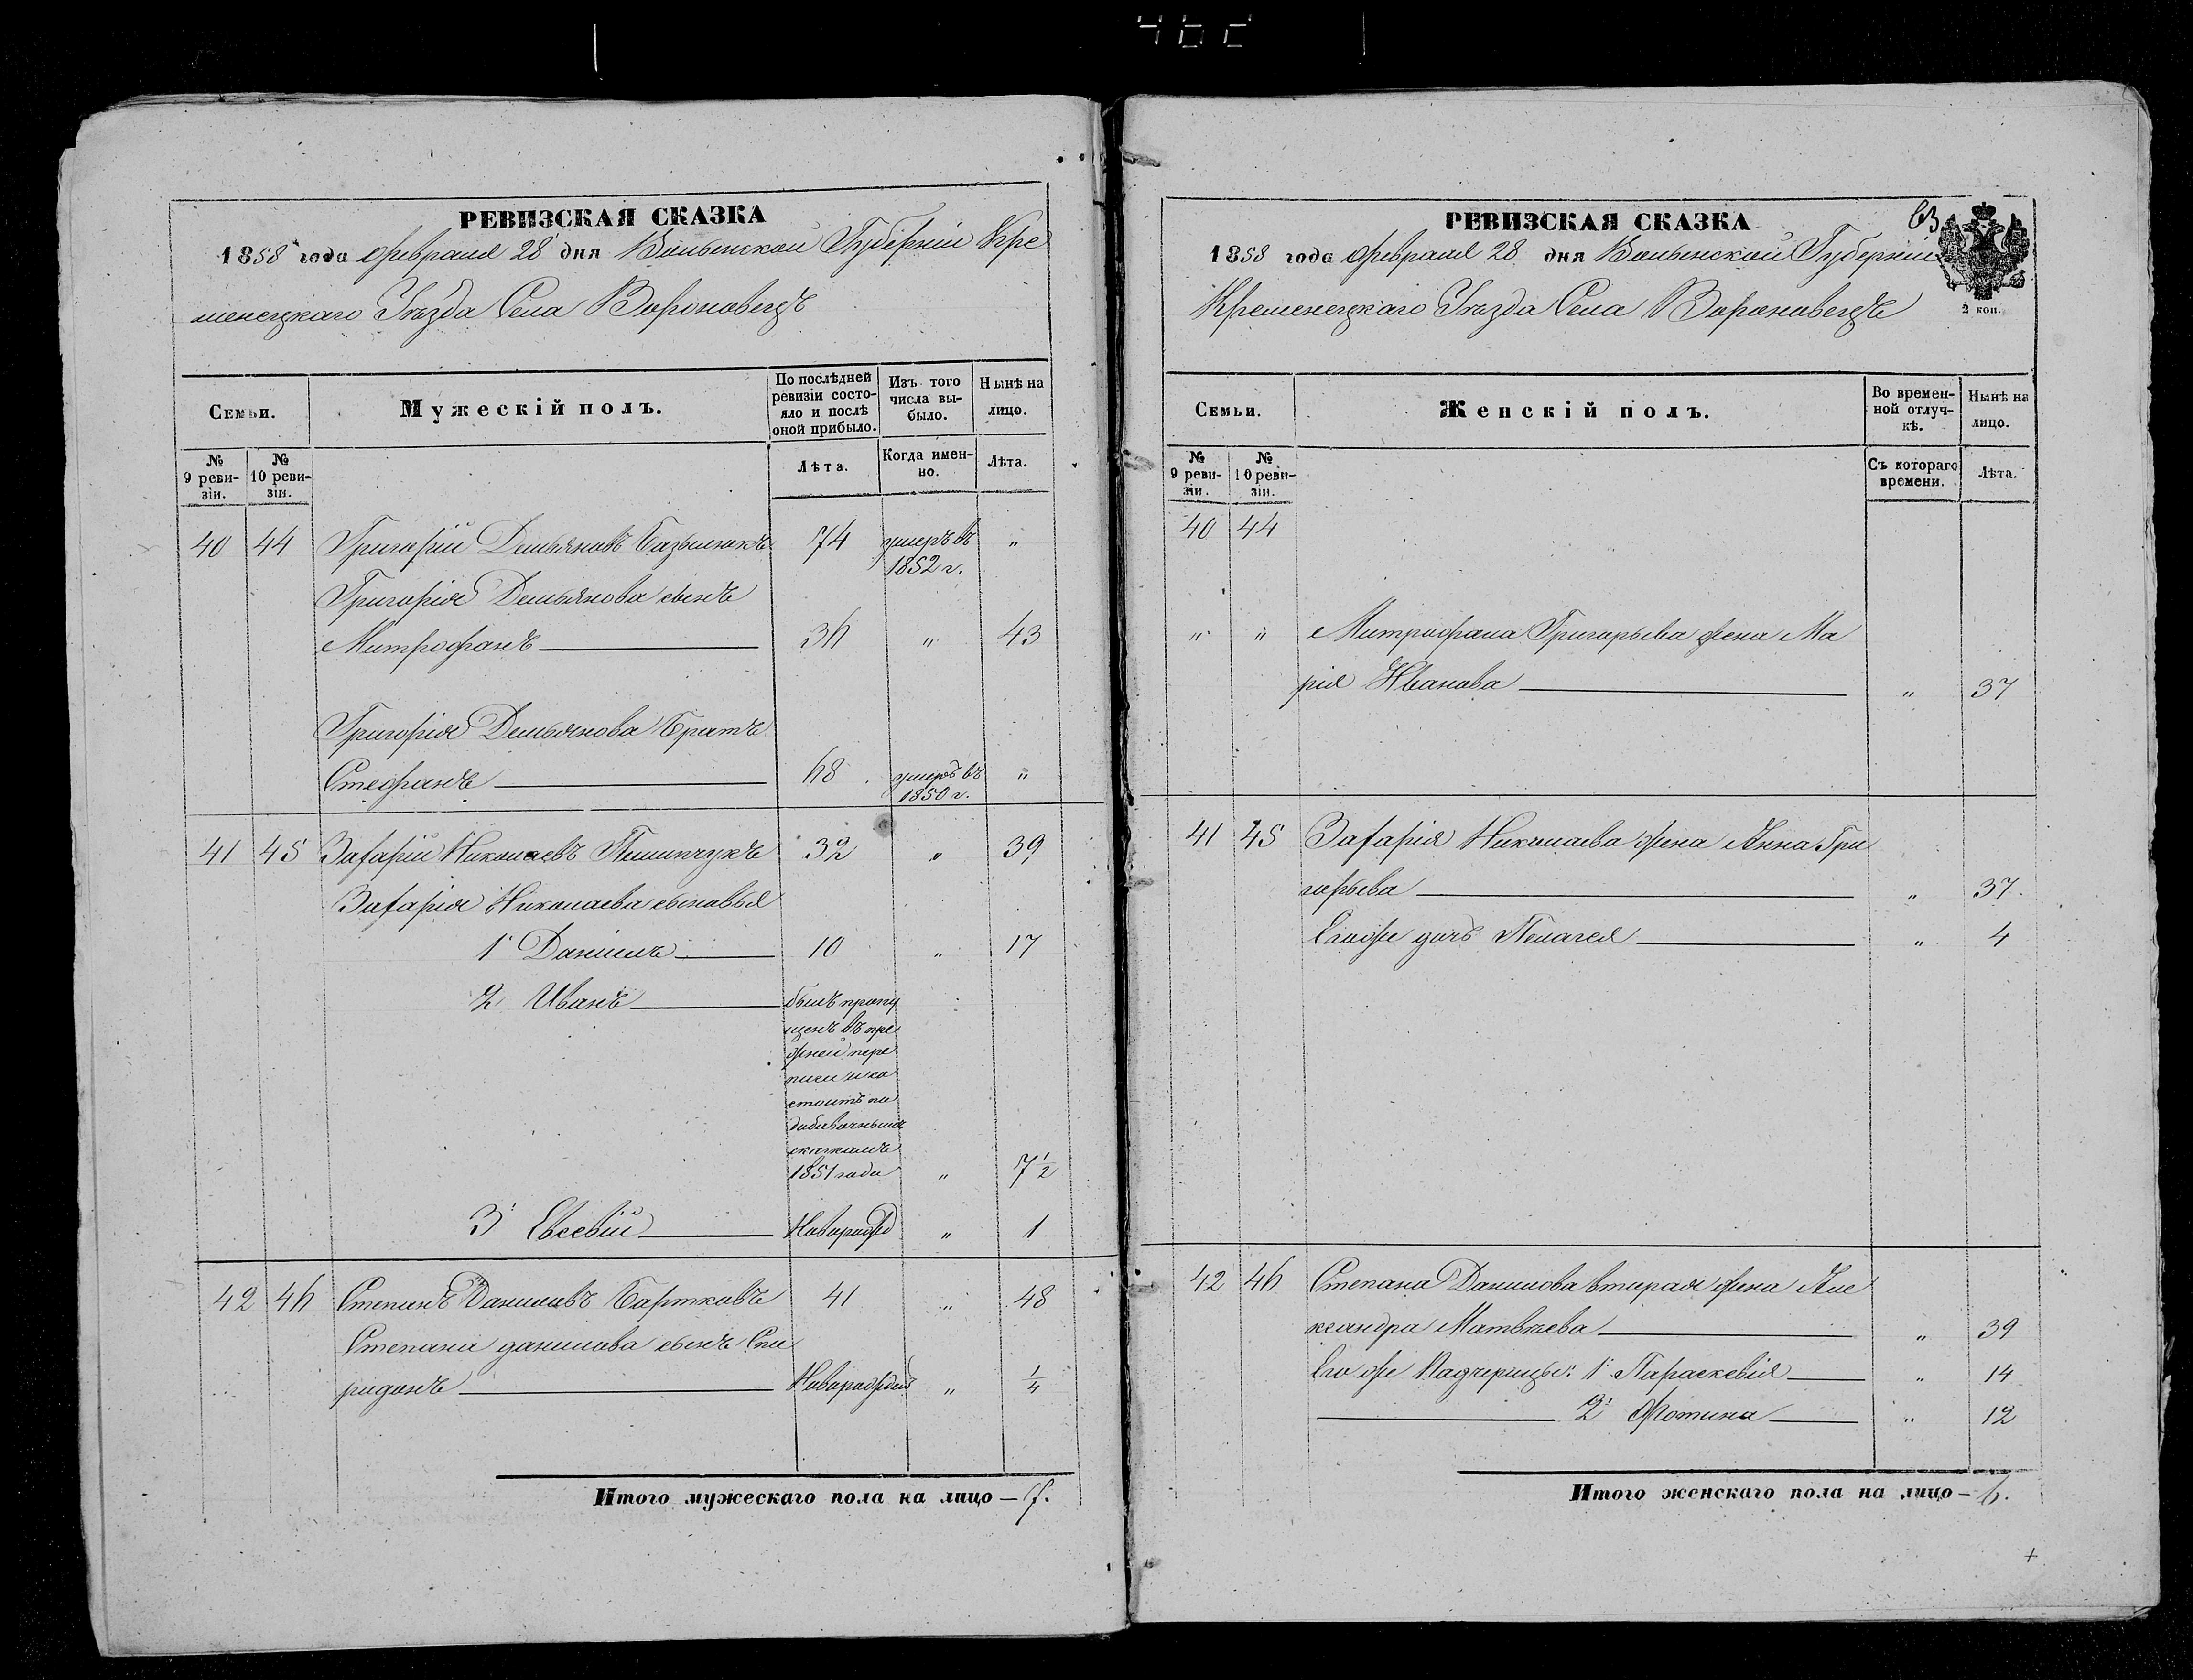 462
РЕВИЗСКАЯ СКАЗКА
1858 года февраля 28 дня Волынской Губерніи Кре
менецкаго Уѣзда Села Вороновецъ
Семьи.
Мужескій полъ.
По послѣдней
ревизіи состо-
яло и послѣ
оной прибыло.
Изъ того
числа вы-
было.
Нынѣ на
лицо.
№
9 реви-
зіи.
№
10 реви-
зіи.
Лѣта.
Когда имен-
но.
Лѣта.
40 44 Григорій Демьяновъ Базылюкъ 74 умеръ въ "
1852 г.
Григорія Демьянова сынъ
Митрофанъ 36 " 43
Григорія Демьянова Братъ
Стефанъ 68 умеръ въ "
1850 г.
41 45 Захарій Николаевъ 32 " 39
Захарія Николаева сыновья
1й Даніилъ 10 " 17
2 Иванъ былъ пропу
щенъ въ пре
жней пере
писи и со
стоитъ по
добавочнымъ
сказкамъ
1851 года " 7 1/2
3й Евсевій Новорожд " 1
42 46 Степанъ Даниловъ Бартковъ 41 " 48
Степана данилова сынъ Спи
ридонъ Новорожден " 1/4
Итого мужескаго пола на лицо — 7.
63
РЕВИЗСКАЯ СКАЗКА
1858 года февраля 28 дня Волынской Губерніи
Кременецкаго Уѣзда Села Вороновецъ
2 коп.
Семьи.
Женскій полъ.
Во времен-
ной отлуч-
кѣ.
Нынѣ на
лицо.
№
9 реви-
зіи.
№
10 реви-
зіи.
Съ котораго
времени.
Лѣта.
40 44
" " Митрофана Григорьева жена Ма
рія Иванова " 37
41 45 Захарія Николаева жена Анна Гри
горьева " 37
Егоже дочь Пелагея " 4
42 46 Степана Данилова вторая жена Але
ксандра Матвѣева " 39
Его же Падчерицы: 1я Параскевія " 14
2я Фотина " 12
Итого женскаго пола на лицо — 6.